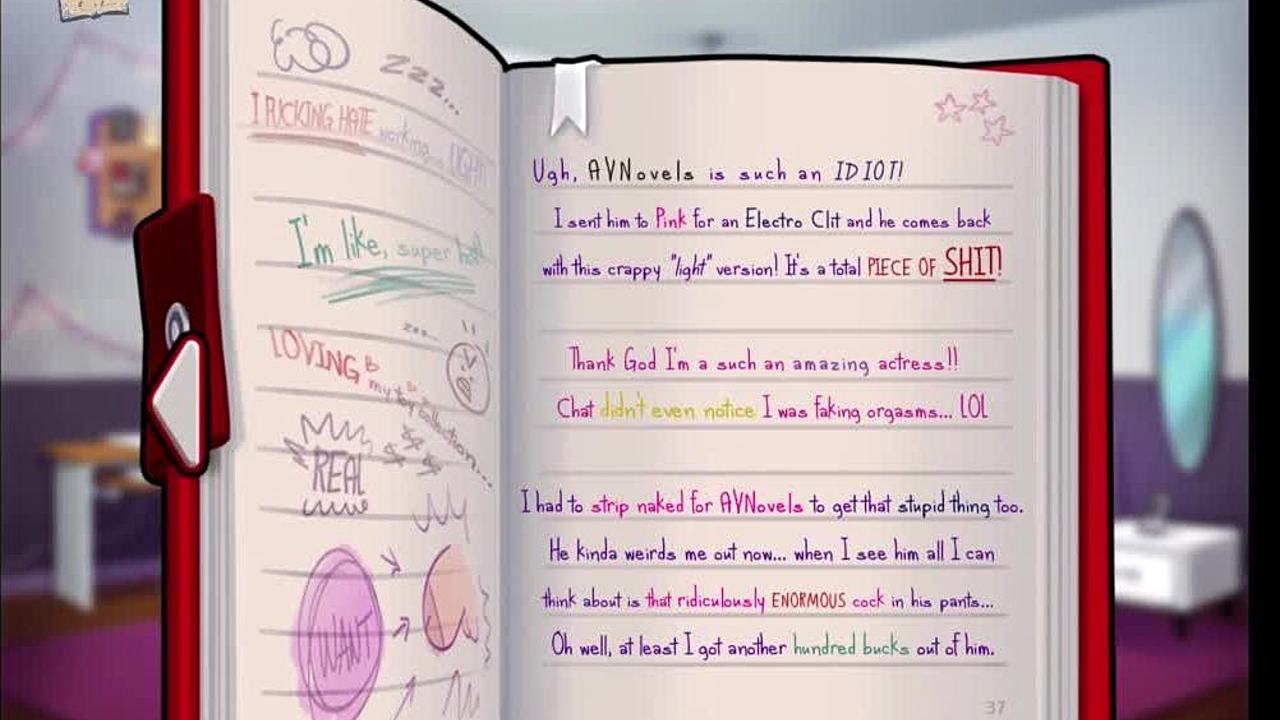 zzz...
I FUCKING HATE working... UGH!
I'm like, super
LOVING
zzz...
my toy collection...
REAL
WANT
Ugh, AVNovels is such an IDIOT!
I sent him to Pink for an Electro Clit and he comes back
with this crappy "light" version! It's a total PIECE OF SHIT!
Thank God I'm a such an amazing actress!!
Chat didn't even notice I was faking orgasms... LOL
I had to strip naked for AVNovels to get that stupid thing too.
He kinda weirds me out now... when I see him all I can
think about is that ridiculously ENORMOUS cock in his pants...
Oh well, at least I got another hundred bucks out of him.
37